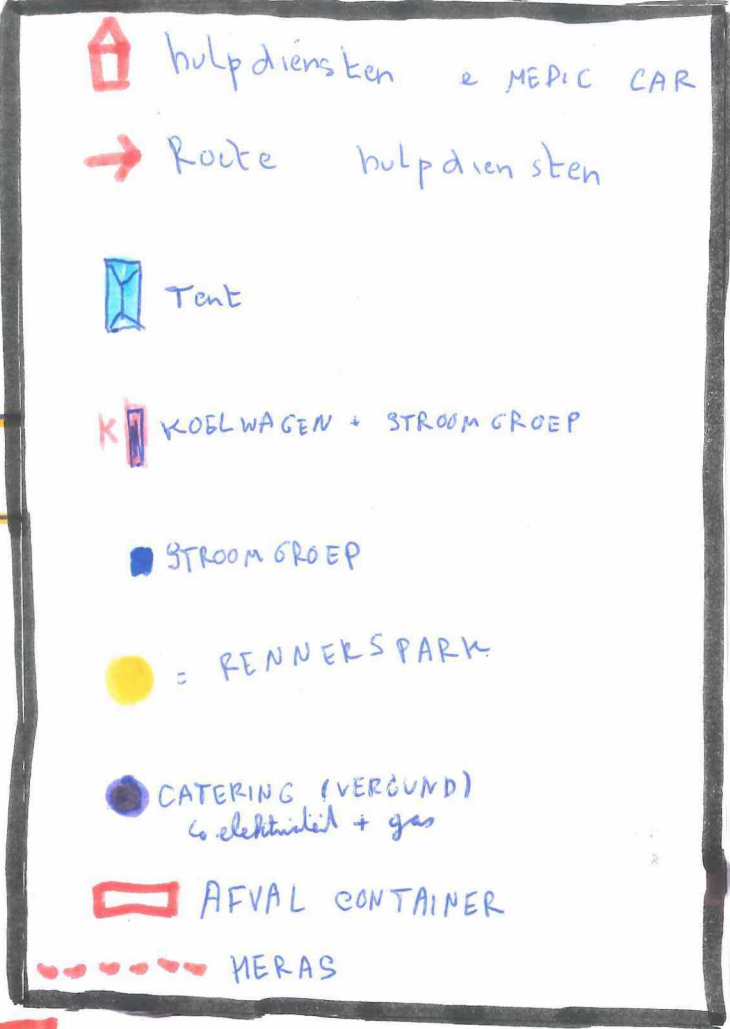 hulpdiensten e MEDIC CAR
Route hulpdiensten
Tent
K KOELWAGEN + STROOMGROEP
STROOMGROEP
= RENNERSPARK
CATERING (VERGUND)
↳ elektriciteit + gas
AFVAL CONTAINER
HERAS